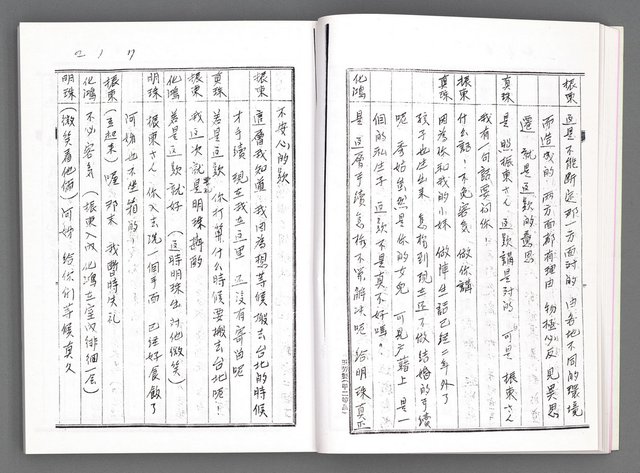 振東 這是不能斷定那一方面對的 由各地不同的環境
而造成的 兩方面都有理由 物極必反 見異思
遷 就是這款的意思
真珠 是 照振東さん 這款講是對的 可是 振東さん
我有一句話要問你
振東 什么話？不免客氣 做你講
真珠 因為你和我的小妹 做陣生活已經二年外了
孩子也生出來 怎樣到現在還不做結婚的手續
呢 秀姑虽然是你的女兒 可是戶籍上 是一
個的私生子 這款不是真不好嗎？
化鴻 是 這層手續怎樣不览解決呢 給明珠真正
不安心的款
振東 這層我知道 我因為想等候搬去台北的時候
才手續 現在我在這里 又沒有寄留呢！
真珠 若是這款 你打算什么時候要搬去台北呢！
振東 我這次就是要与明珠辦的
化鴻 若是這款就好 （這時明珠出 对他微笑）
明珠 振東さん 你入去洗一個手面 已經好食飯了
阿姊也不坐 站的
振東 （立起來） 喔 那末 我暫時失礼
化鴻 不必客氣 （振東入內 化鴻在室內徘徊一舍）
明珠 （微笑看他倆） 阿姊 給你們等候真久
217